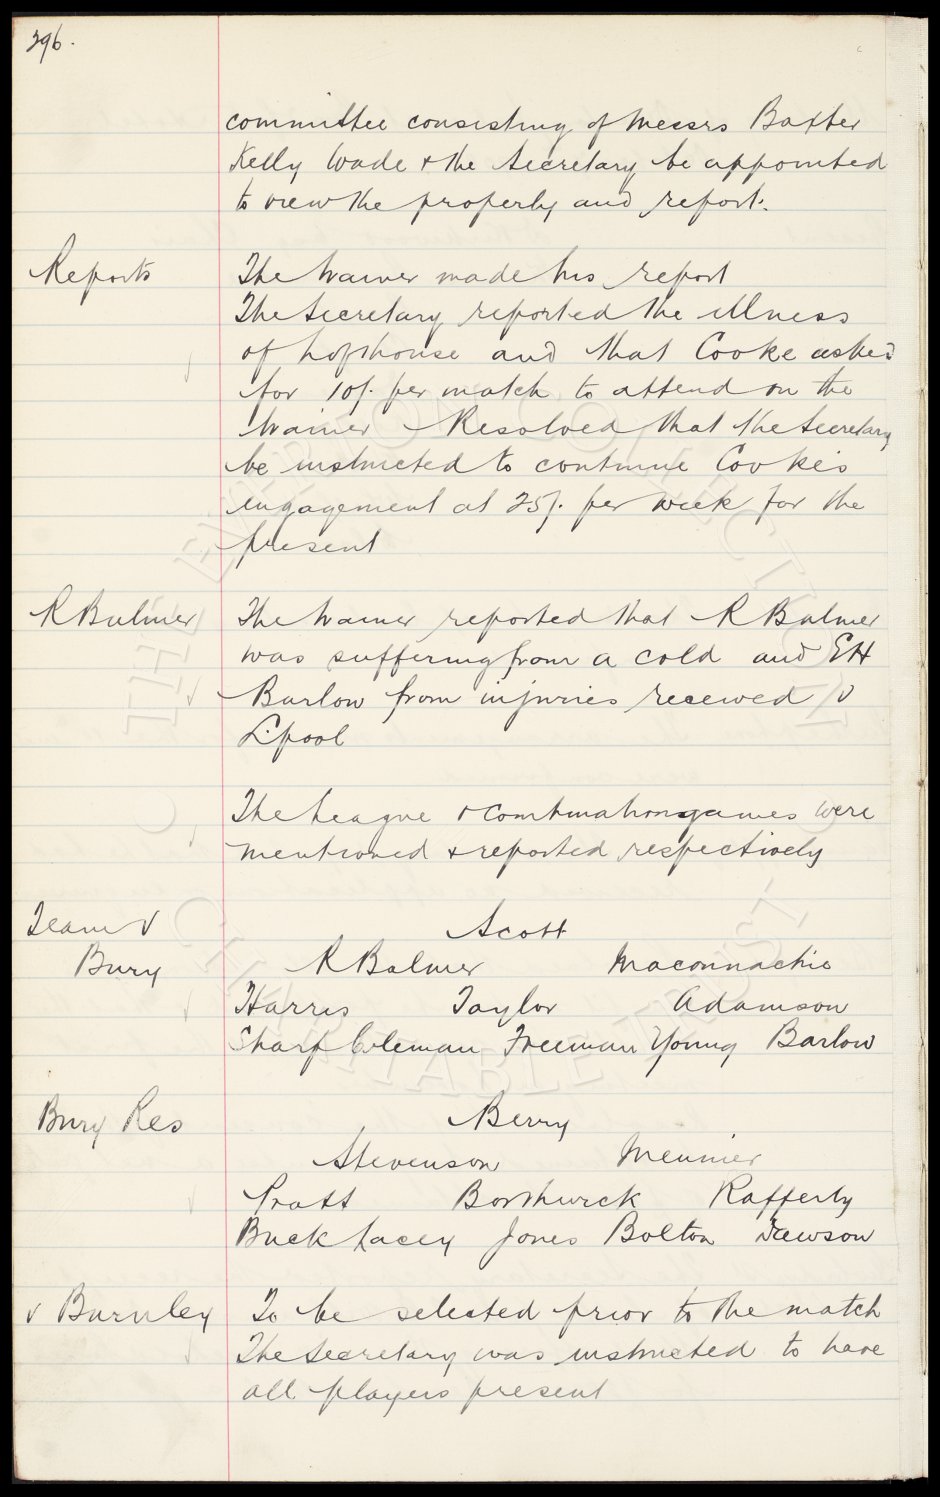 296.
committee consisting of Messrs Baxter
Kelly Wade & the Secretary be appointed
to view the property and report.
Reports
The trainer made his report
The Secretary reported the illness
of Lofthouse and that Cooke asked
for 10/- per match to attend on the
trainer Resolved that the Secretary
be instructed to continue Cooke's
engagement at 25/- per week for the
present
R Balmer
The trainer reported that R Balmer
was suffering from a cold and EH
Barlow from injuries received v
L'pool
The League & Combination games were
mentioned & reported respectively
Team v
Bury
Scott
R Balmer Maconnachie
Harris Taylor Adamson
Sharp Coleman Freeman Young Barlow
Bury Res
Berry
Stevenson Meunier
Pratt Borthwick Rafferty
Buck Lacey Jones Bolton Dawson
v Burnley
To be selected prior to the match
The Secretary was instructed to have
all players present
THE EVERTON COLLECTION
CHARITABLE TRUST